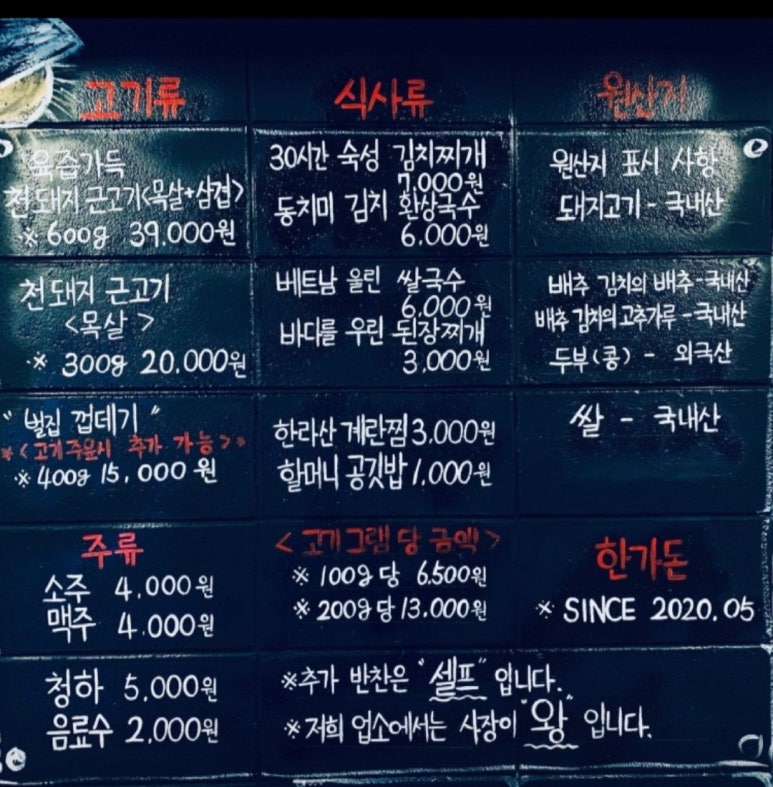 고기류
육즙가득
천돼지 근고기<목살+삼겹>
※ 600g 39.000원
천돼지 근고기
<목살>
※ 300g 20.000원
" 벌집 껍데기 "
※<고기주문시 추가 가능>※
※ 400g 15,000 원
주류
소주 4.000원
맥주 4.000원
청하 5,000원
음료수 2,000원
식사류
30시간 숙성 김치찌개
7.000원
동치미 김치 환상국수
6.000원
베트남 울린 쌀국수
6.000원
바다를 우린 된장찌개
3.000원
한라산 계란찜 3.000원
할머니 공깃밥 1,000원
<고기그램 당 금액>
※ 100g 당 6.500원
※ 200g 당 13.000원
※추가 반찬은 "셀프" 입니다.
※저희 업소에서는 사장이 "왕" 입니다.
원산지
원산지 표시 사항
돼지고기 - 국내산
배추 김치의 배추 - 국내산
배추 김치의 고추가루 - 국내산
두부(콩) - 외국산
쌀 - 국내산
한가돈
※ SINCE 2020.05